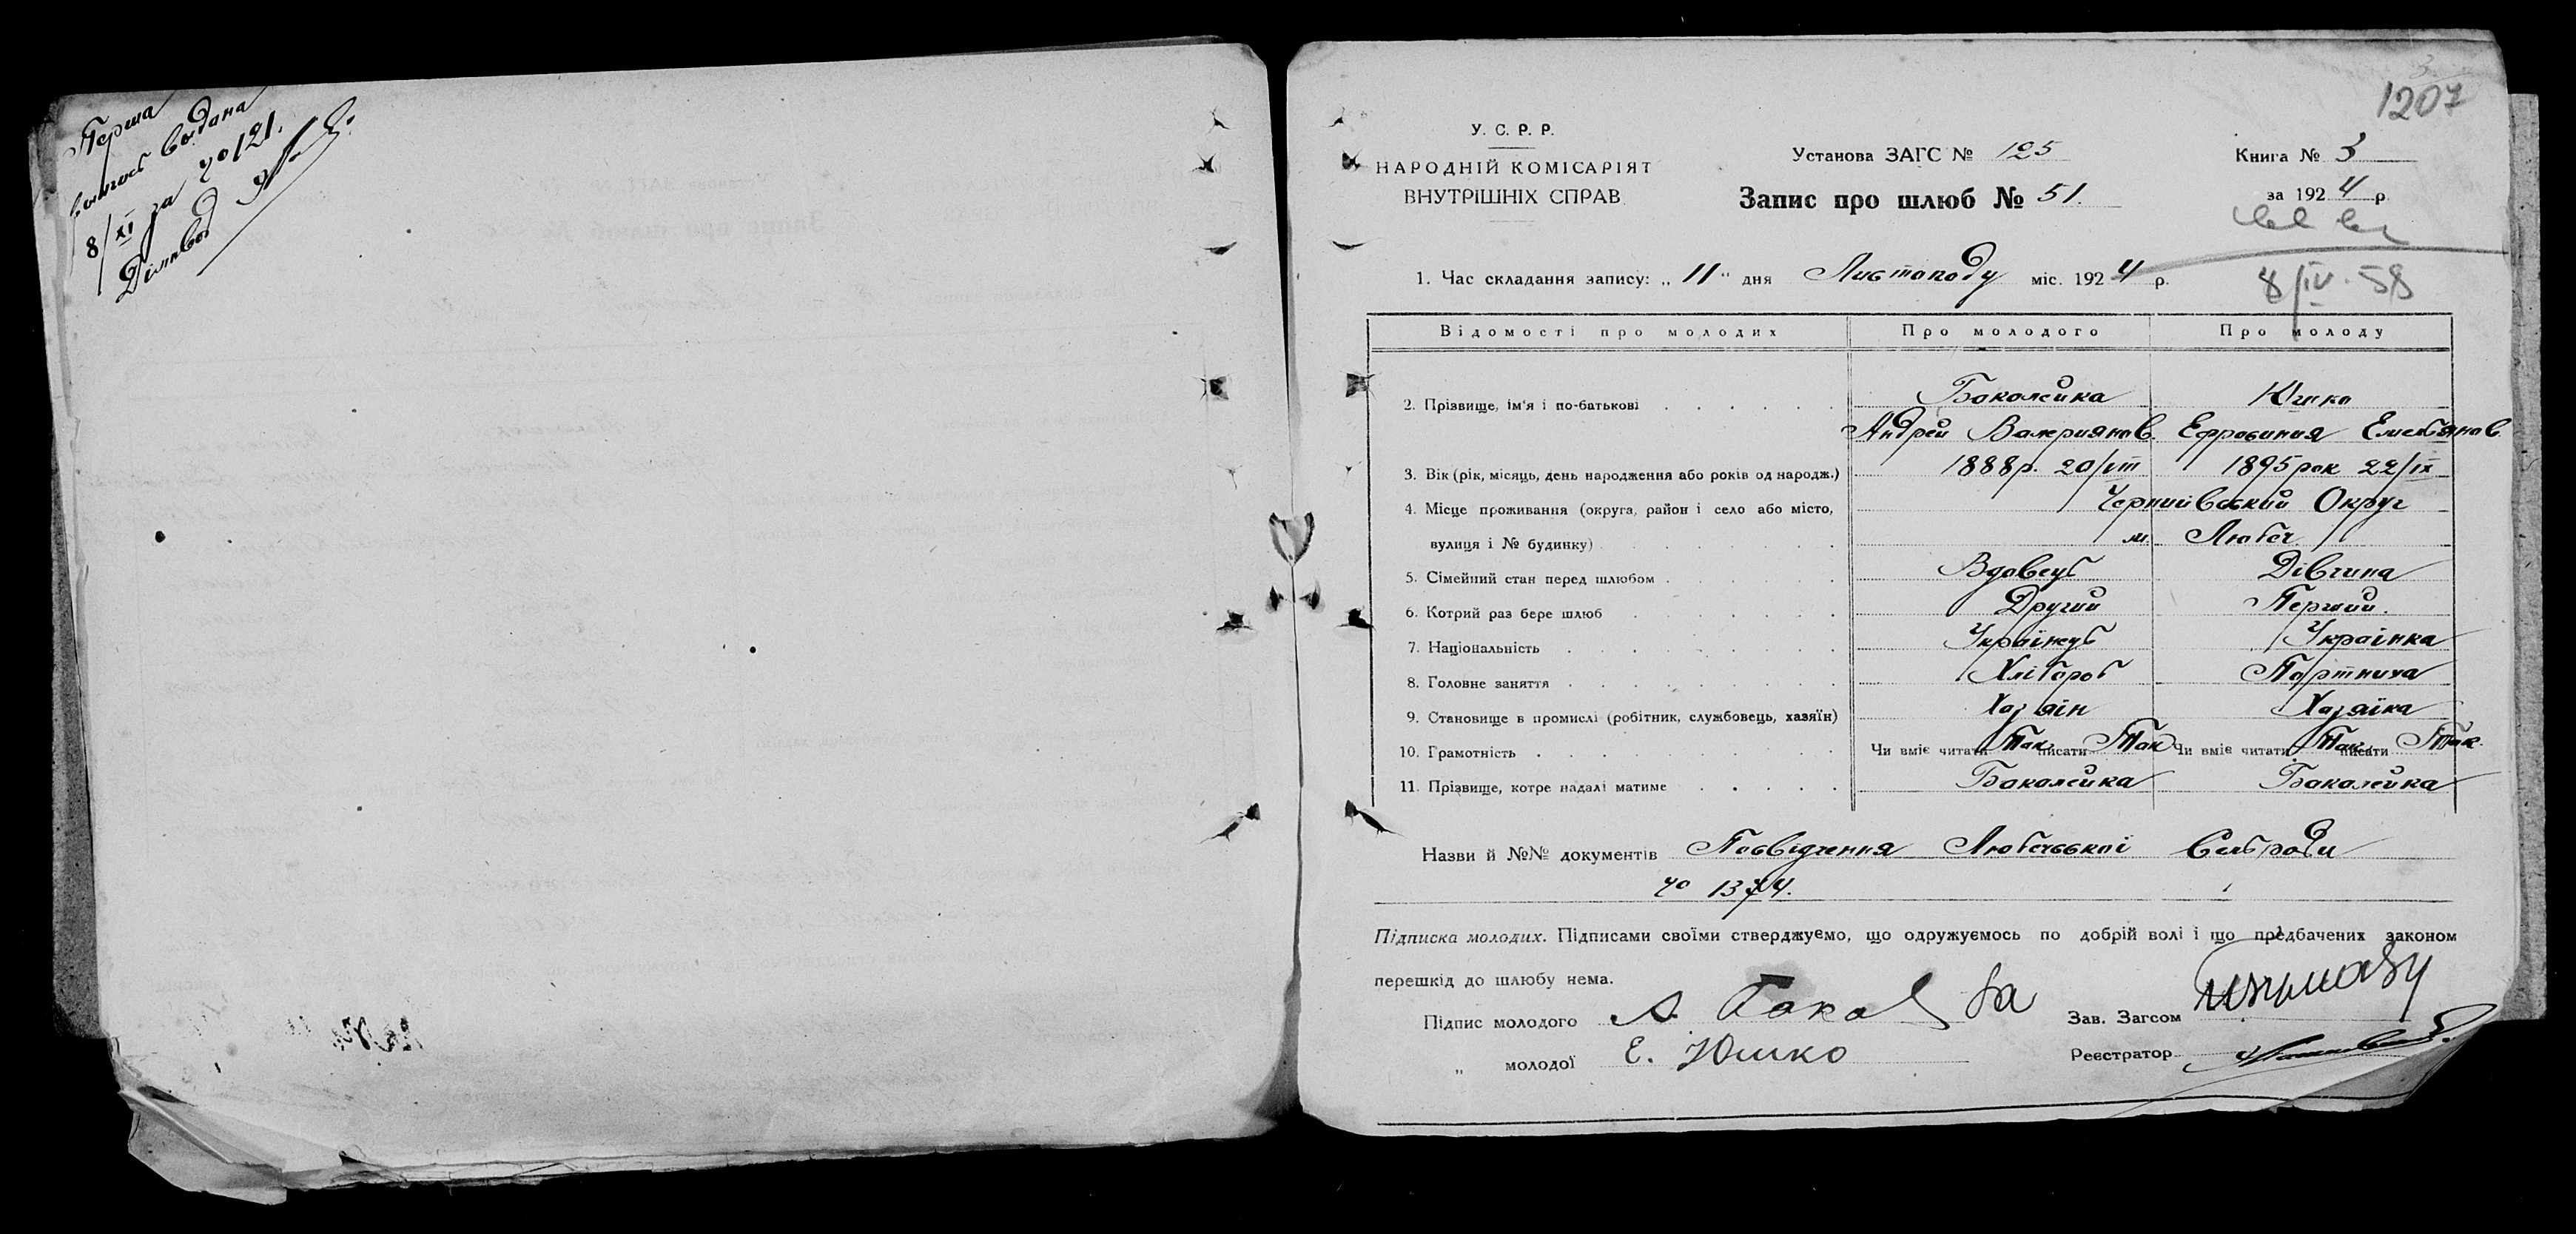 Перша
виписъ видана
8/XI за № 121.
Діловод
1207
У. С. Р. Р.
НАРОДНІЙ КОМІСАРІЯТ
ВНУТРІШНІХ СПРАВ
Установа ЗАГС № 125
Книга № 3
Запис про шлюб № 51.
за 1924 р.
8/IV-58
1. Час складання запису: „11" дня Листопаду міс. 1924 р.
Відомості про молодих Про молодого Про молоду
2. Прізвище, ім'я і по-батькові Баколейка Юшко
Андрей Валериянов. Ефросиния Емельянов.
3. Вік (рік, місяць, день народження або років од народж.) 1888р. 20/VIII 1895 рок 22/IX
4. Місце проживання (округа, район і село або місто, Чернигівський Округ
вулиця і № будинку) м. Любеч
5. Сімейний стан перед шлюбом Вдовець Дівчина
6. Котрий раз бере шлюб Другий Перший.
7. Національність Українець Українка
8. Головне заняття Хлібороб Портниха
9. Становище в промислі (робітник, службовець, хазяїн) Хазяїн Хазяїка
10. Грамотність Чи вміє читати Так писати Так Чи вміє читати Так писати Так
11. Прізвище, котре надалі матиме Баколейка Баколейка
Назви й №№ документів Посвідчення Любечської Сельради
№ 1374.
Підписка молодих. Підписами своїми стверджуємо, що одружуємось по добрій волі і що предбачених законом
перешкід до шлюбу нема.
Підпис молодого А. Зав. Загсом
„ молодої Е. Юшко Реєстратор